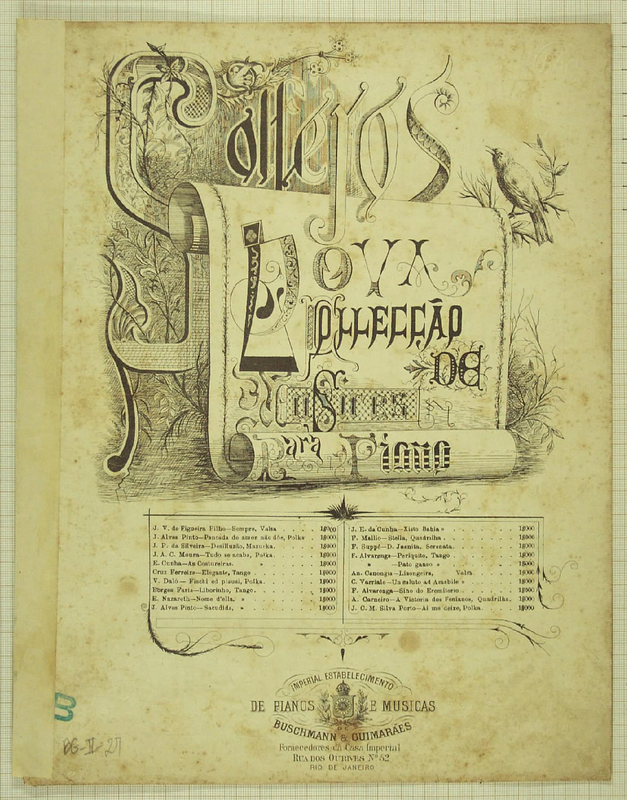 Gallejos
Nova
Collecção
DE
Musicas
Para Piano
J. V. de Figueira Filho—Sempre, Valsa . . . 1$000
J. Alves Pinto—Pancada de amor não dóe, Polka 1$000
J. P. da Silveira—Desillusão, Mazurka. . . . 1$000
J. A. C. Moura—Tudo se acaba, Polka. . . . 1$000
E. Cunha—As Costureiras. » . . . 1$000
Cruz Ferreira—Elegante, Tango . . . . . 1$000
V. Daló—Fischi ed plausi, Polka. . . . . 1$000
Borges Faria—Liborinho, Tango. . . . . 1$000
E. Nazareth—Nome d'ella, » . . . . . 1$000
J. Alves Pinto—Sacudida, » . . . . . 1$000
J. E. da Cunha—Xisto Bahia » . . . . 1$000
P. Mallio—Stella, Quadrilha . . . . . 1$000
F. Suppé—D. Juanita, Serenata. . . . . 1$000
F. Alvarenga—Periquito, Tango . . . . 1$000
» —Pato ganso » . . . . 1$000
An. Canongia—Lisongeira, Valsa. . . . 1$000
C. Varriale—Un saluto ad Amabile » . . . 1$000
F. Alvarenga—Sino do Eremiterio. . . . 1$000
A. Carneiro—A Victoria dos Fenianos, Quadrilha. 1$000
J. C. M. Silva Porto—Ai me deixe, Polka. . . 1$000
IMPERIAL ESTABELECIMENTO
DE PIANOS E MUSICAS
DE
BUSCHMANN & GUIMARÃES
Fornecedores da Casa Imperial
RUA DOS OURIVES Nº 52
RIO DE JANEIRO
B
BG-II-27